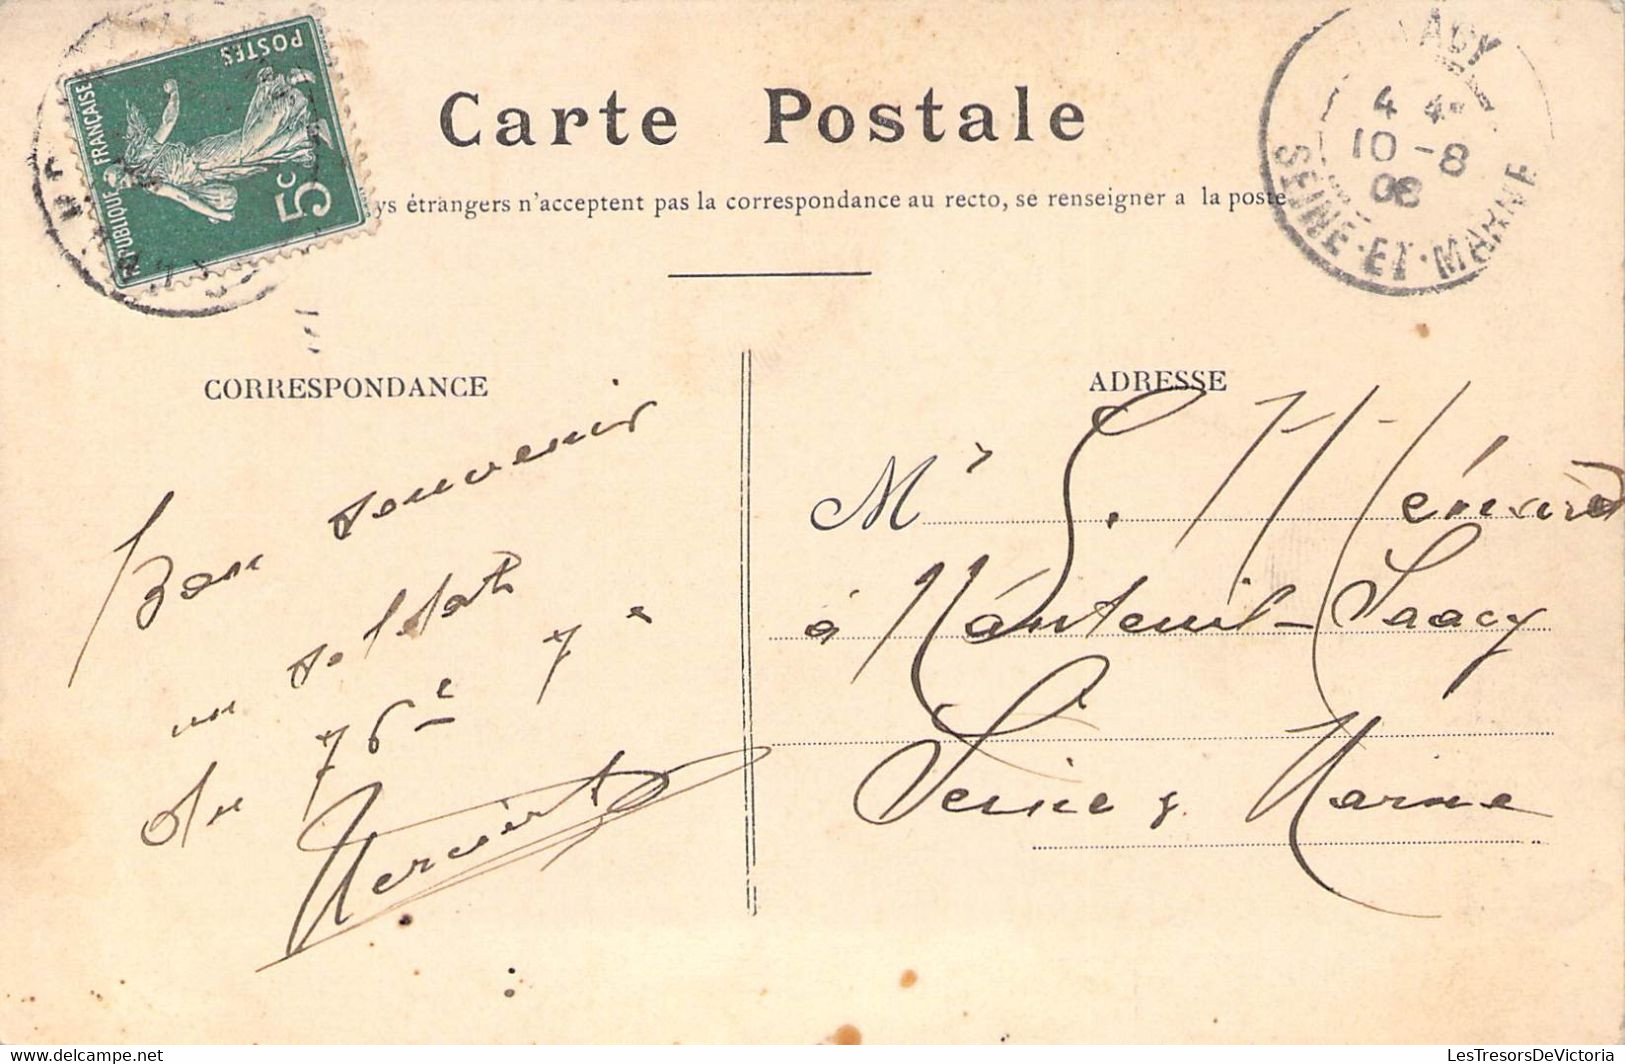 POSTES
RÉPUBLIQUE FRANÇAISE
5c
Carte Postale
ys étrangers n'acceptent pas la correspondance au recto, se renseigner a la poste
AACY
4 4
10 - 8
08
SEINE-ET-MARNE
CORRESPONDANCE
Bon souvenir
un soldat
du 76e 7e
ADRESSE
Mr S. Ménard
à Nanteuil-Saacy
Seine & Marne
LesTresorsDeVictoria
LesTresorsDeVictoria.com